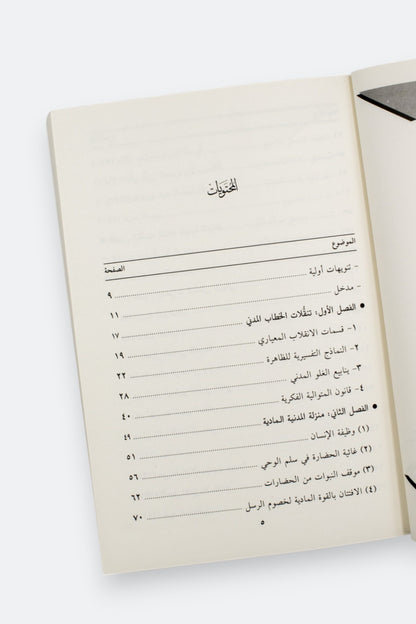 المحتويات
الموضوع الصفحة
- تنويهات أولية ٩
- مدخل ١١
● الفصل الأول: تنقُّلات الخطاب المدني ١٧
١- قسمات الانقلاب المعياري ١٩
٢- النماذج التفسيرية للظاهرة ٢٢
٣- ينابيع الغلو المدني ٢٨
٤- قانون المتوالية الفكرية ٤٠
● الفصل الثاني: منزلة المدنية المادية ٤٩
(١) وظيفة الإنسان ٥١
(٢) غائية الحضارة في سلم الوحي ٥٦
(٣) موقف النبوات من الحضارات ٦٢
(٤) الافتتان بالقوة المادية لخصوم الرسل ٧٠
٥